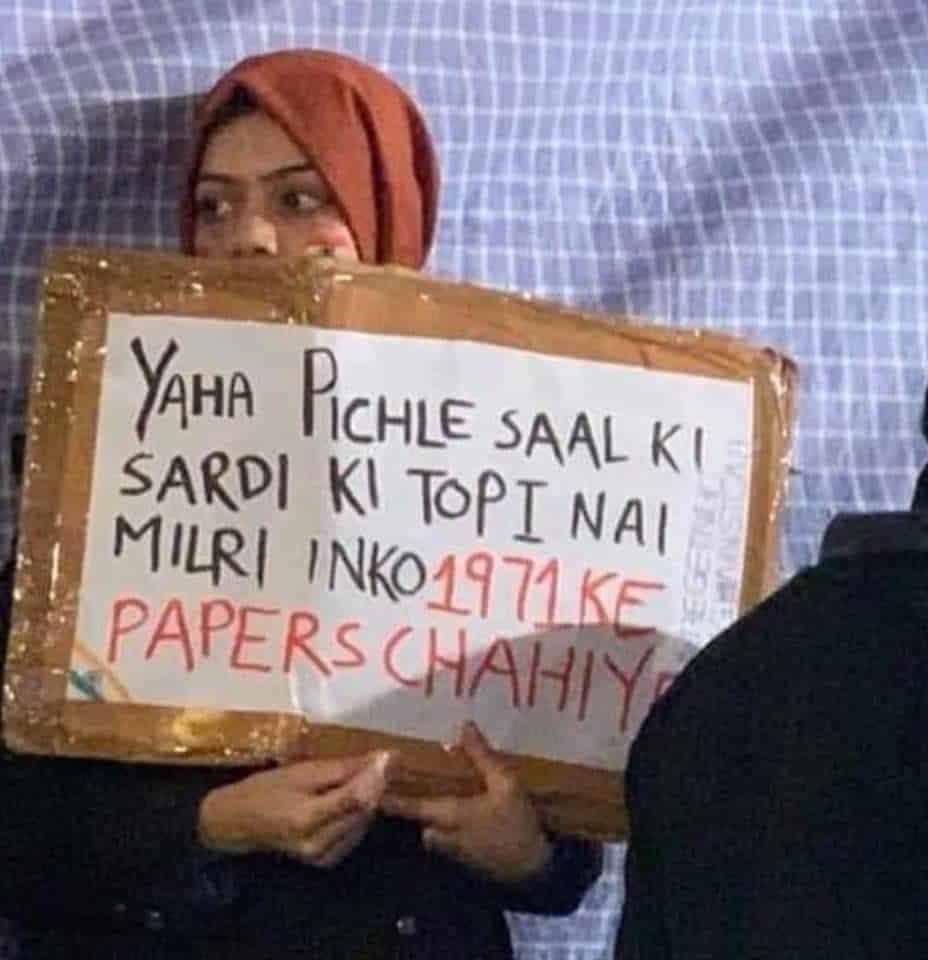 YAHA PICHLE SAAL KI
SARDI KI TOPI NAI
MILRI INKO 1971 KE
PAPERS CHAHIYE